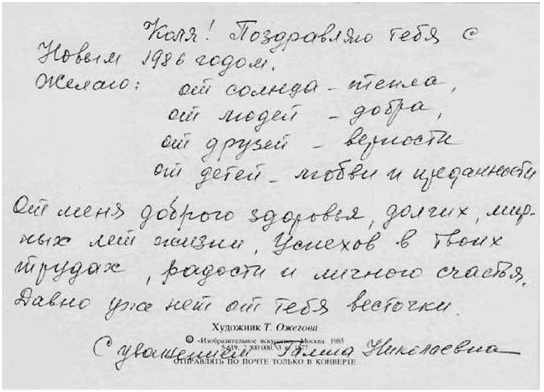 Коля! Поздравляю тебя с
Новым 1986 годом.
Желаю: от солнца – тепла,
от людей – добра,
от друзей – верности
от детей – любви и преданности
От меня доброго здоровья, долгих, мир-
ных лет жизни, успехов в твоих
трудах, радости и личного счастья.
Давно уже нет от тебя весточки.
Художник Т. Ожегова
© «Изобразительное искусство». Москва. 1985
5-619. 2 300 000. 3 к.
С уважением Галина Николаевна
ОТПРАВЛЯТЬ ПО ПОЧТЕ ТОЛЬКО В КОНВЕРТЕ